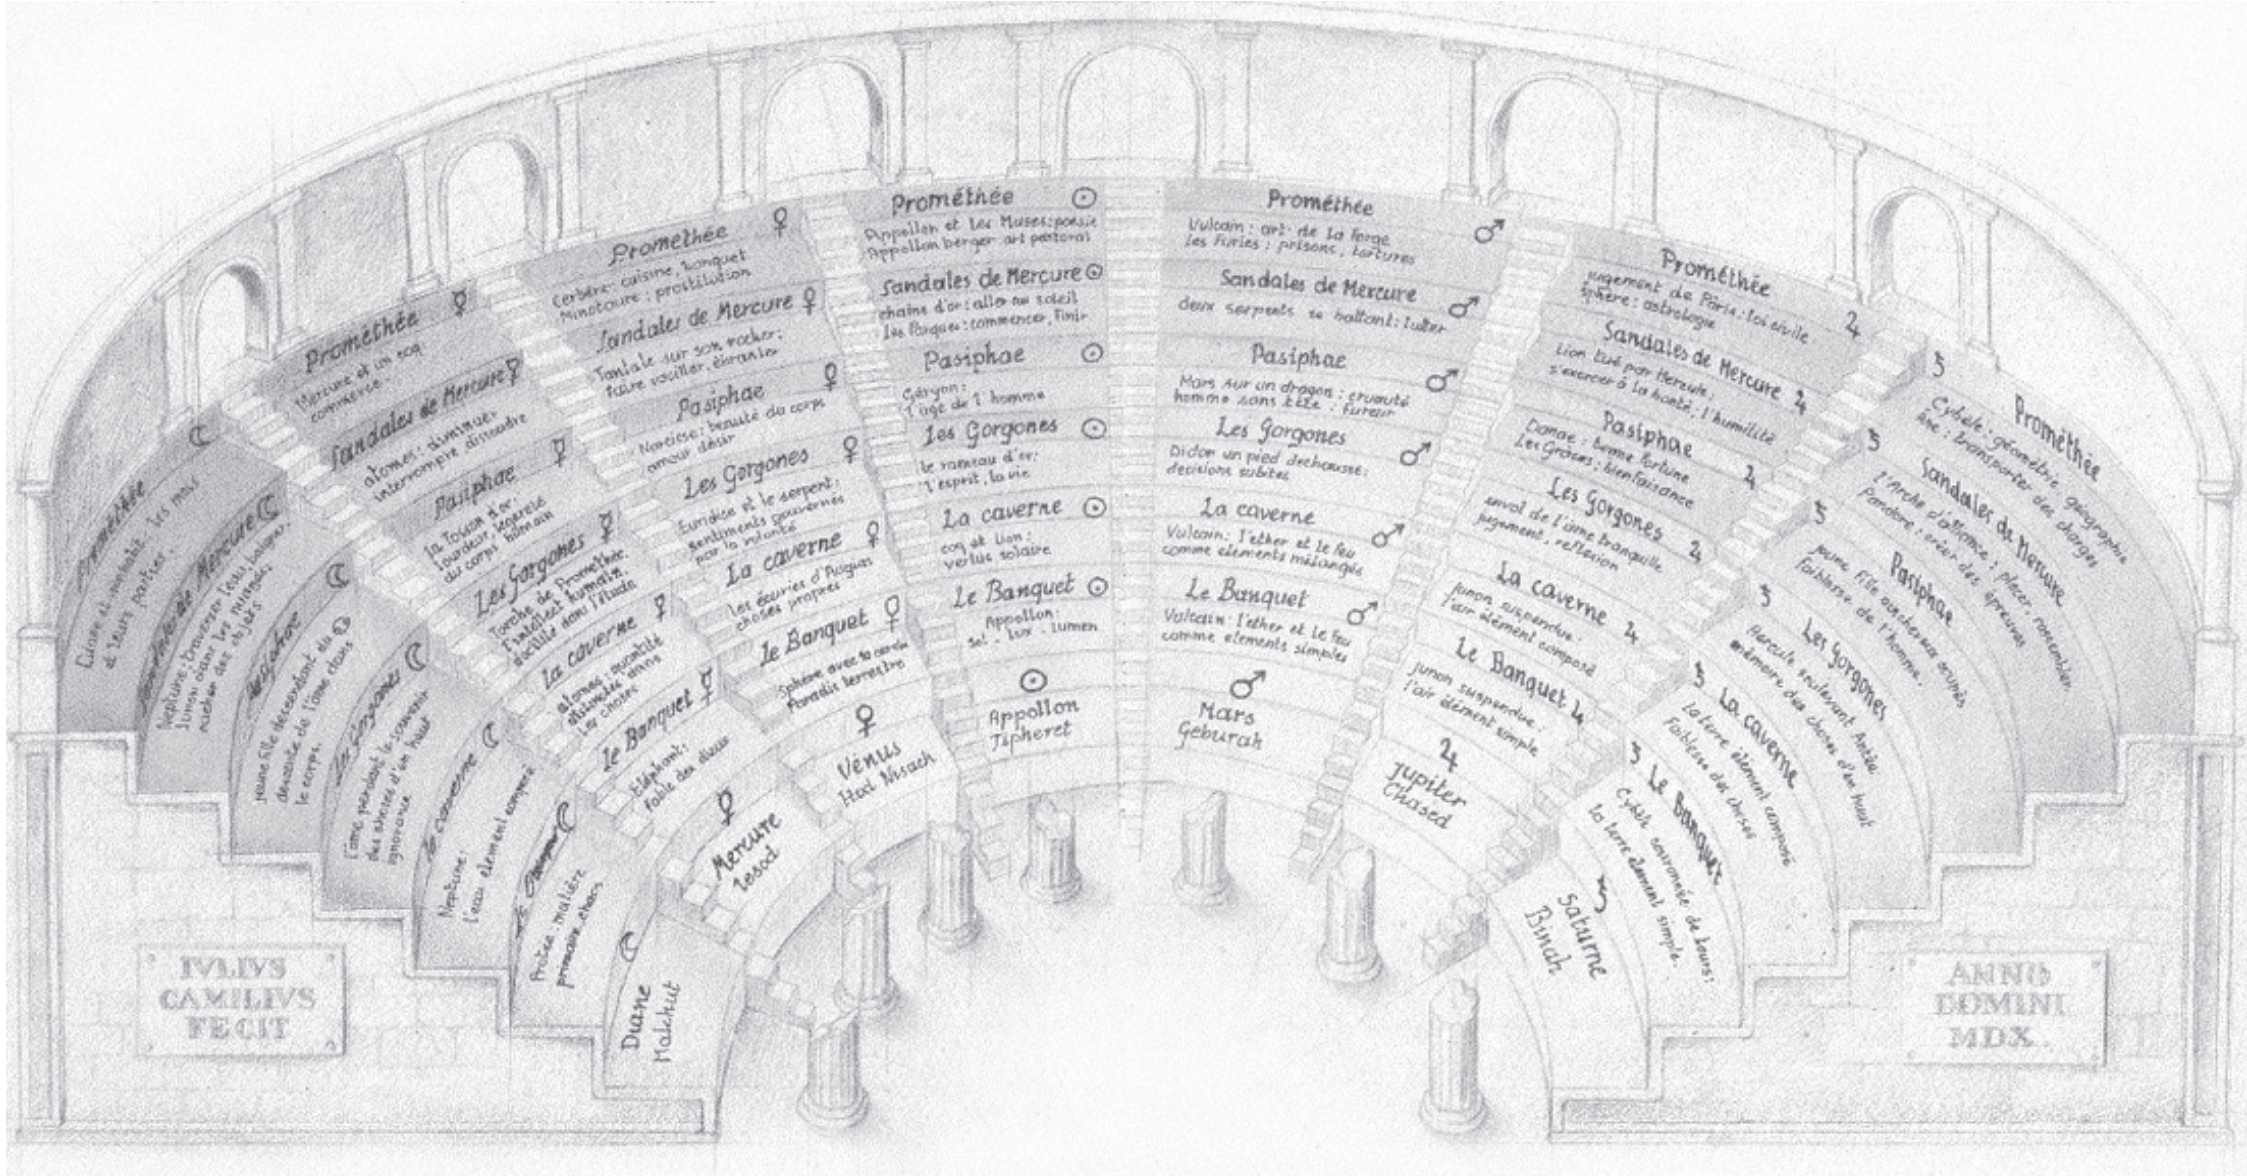 Prométhée ☾
Cuirane et
et leurs parties.
Sandales de Mercure ☾
Neptune: traverser l'eau, baigner.
Junon dans les nuages:
cacher des objets
Pasiphae ☾
jeune fille descendant du
descente de l'âme dans
le corps.
Les Gorgones ☾
l'âme perdant le souvenir
des choses d'en haut
ignorance
La caverne ☾
Neptune:
l'eau element composé
Le Banquet ☾
Protée: matière
première, chaos
☾
Diane
Malchut
Prométhée ☿
Mercure et un coq:
commerce.
Sandales de Mercure ☿
atomes: diminuer
interrompre, dissoudre
Pasiphae ☿
la Toison d'or:
lourdeur, légereté
du corps humain
Les Gorgones ☿
Torche de Prométhée:
l'intellect humain.
docilité dans l'étude
La caverne ☿
atomes: quantité
distinctes dans
les choses
Le Banquet ☿
Eléphant:
fable des dieux
♀
Mercure
Iesod
Prométhée ♀
Cerbère: cuisine, banquet
Minotaure: prostitution
Sandales de Mercure ♀
Tantale sur son rocher:
faire vaciller, ébranler
Pasiphae ♀
Narcisse: beauté du corps
amour désir
Les Gorgones ♀
Euridice et le serpent:
sentiments gouvernés
par la volonté
La caverne ♀
les écuries d'Augias
choses propres
Le Banquet ♀
Sphère avec le cercle
Paradis terrestre
♀
Vénus
Hod Nisach
Prométhée ☉
Appollon et les Muses: poésie
Appollon berger art pastoral
Sandales de Mercure ☉
chaîne d'or: aller au soleil
les Parques: commencer, finir
Pasiphae ☉
Géryon:
l'âge de l'homme
Les Gorgones ☉
le rameau d'or:
l'esprit, la vie
La caverne ☉
coq et Lion:
vertus solaire
Le Banquet ☉
Appollon:
Sol - lux - lumen
☉
Appollon
Tipheret
Prométhée ♂
Vulcain: art de la forge
Les Furies: prisons, tortures
Sandales de Mercure ♂
deux serpents se battant: lutter
Pasiphae ♂
Mars sur un dragon: cruauté
homme sans tête: fureur
Les Gorgones ♂
Didon un pied déchaussé:
decisions subites
La caverne ♂
Vulcain: l'ether et le feu
comme elements mélangés
Le Banquet ♂
Vulcain: l'ether et le feu
comme elements simples
♂
Mars
Geburah
Prométhée ♃
Jugement de Pâris: loi civile
Sphère: astrologie
Sandales de Mercure ♃
Lion tué par Hercule:
s'exercer à la bonté, l'humilité
Pasiphae ♃
Danae: bonne fortune
Les Grâces: bienfaisance
Les Gorgones ♃
envol de l'âme tranquille
jugement, reflexion
La caverne ♃
Junon suspendue:
l'air élément composé
Le Banquet ♃
Junon suspendue:
l'air élément simple
♃
Jupiter
Chased
♄ Prométhée
Cybèle: géométrie géographie
âne: transporter des charges
♄ Sandales de Mercure
L'Arche d'alliance: placer rassembler.
Pandore: créer des épreuves
♄ Pasiphae
jeune fille aux cheveux
faiblesse de l'homme.
♄ Les Gorgones
Hercule soulevant Antée
mémoire des choses d'en haut
♄ La caverne
La terre élément composé
Faiblesse des choses
♄ Le Banquet
Cybèle couronnée de tours:
la terre élement simple.
♄
Saturne
Binah
IVLIVS
CAMILIVS
FECIT
ANNO
DOMINI
MDX.